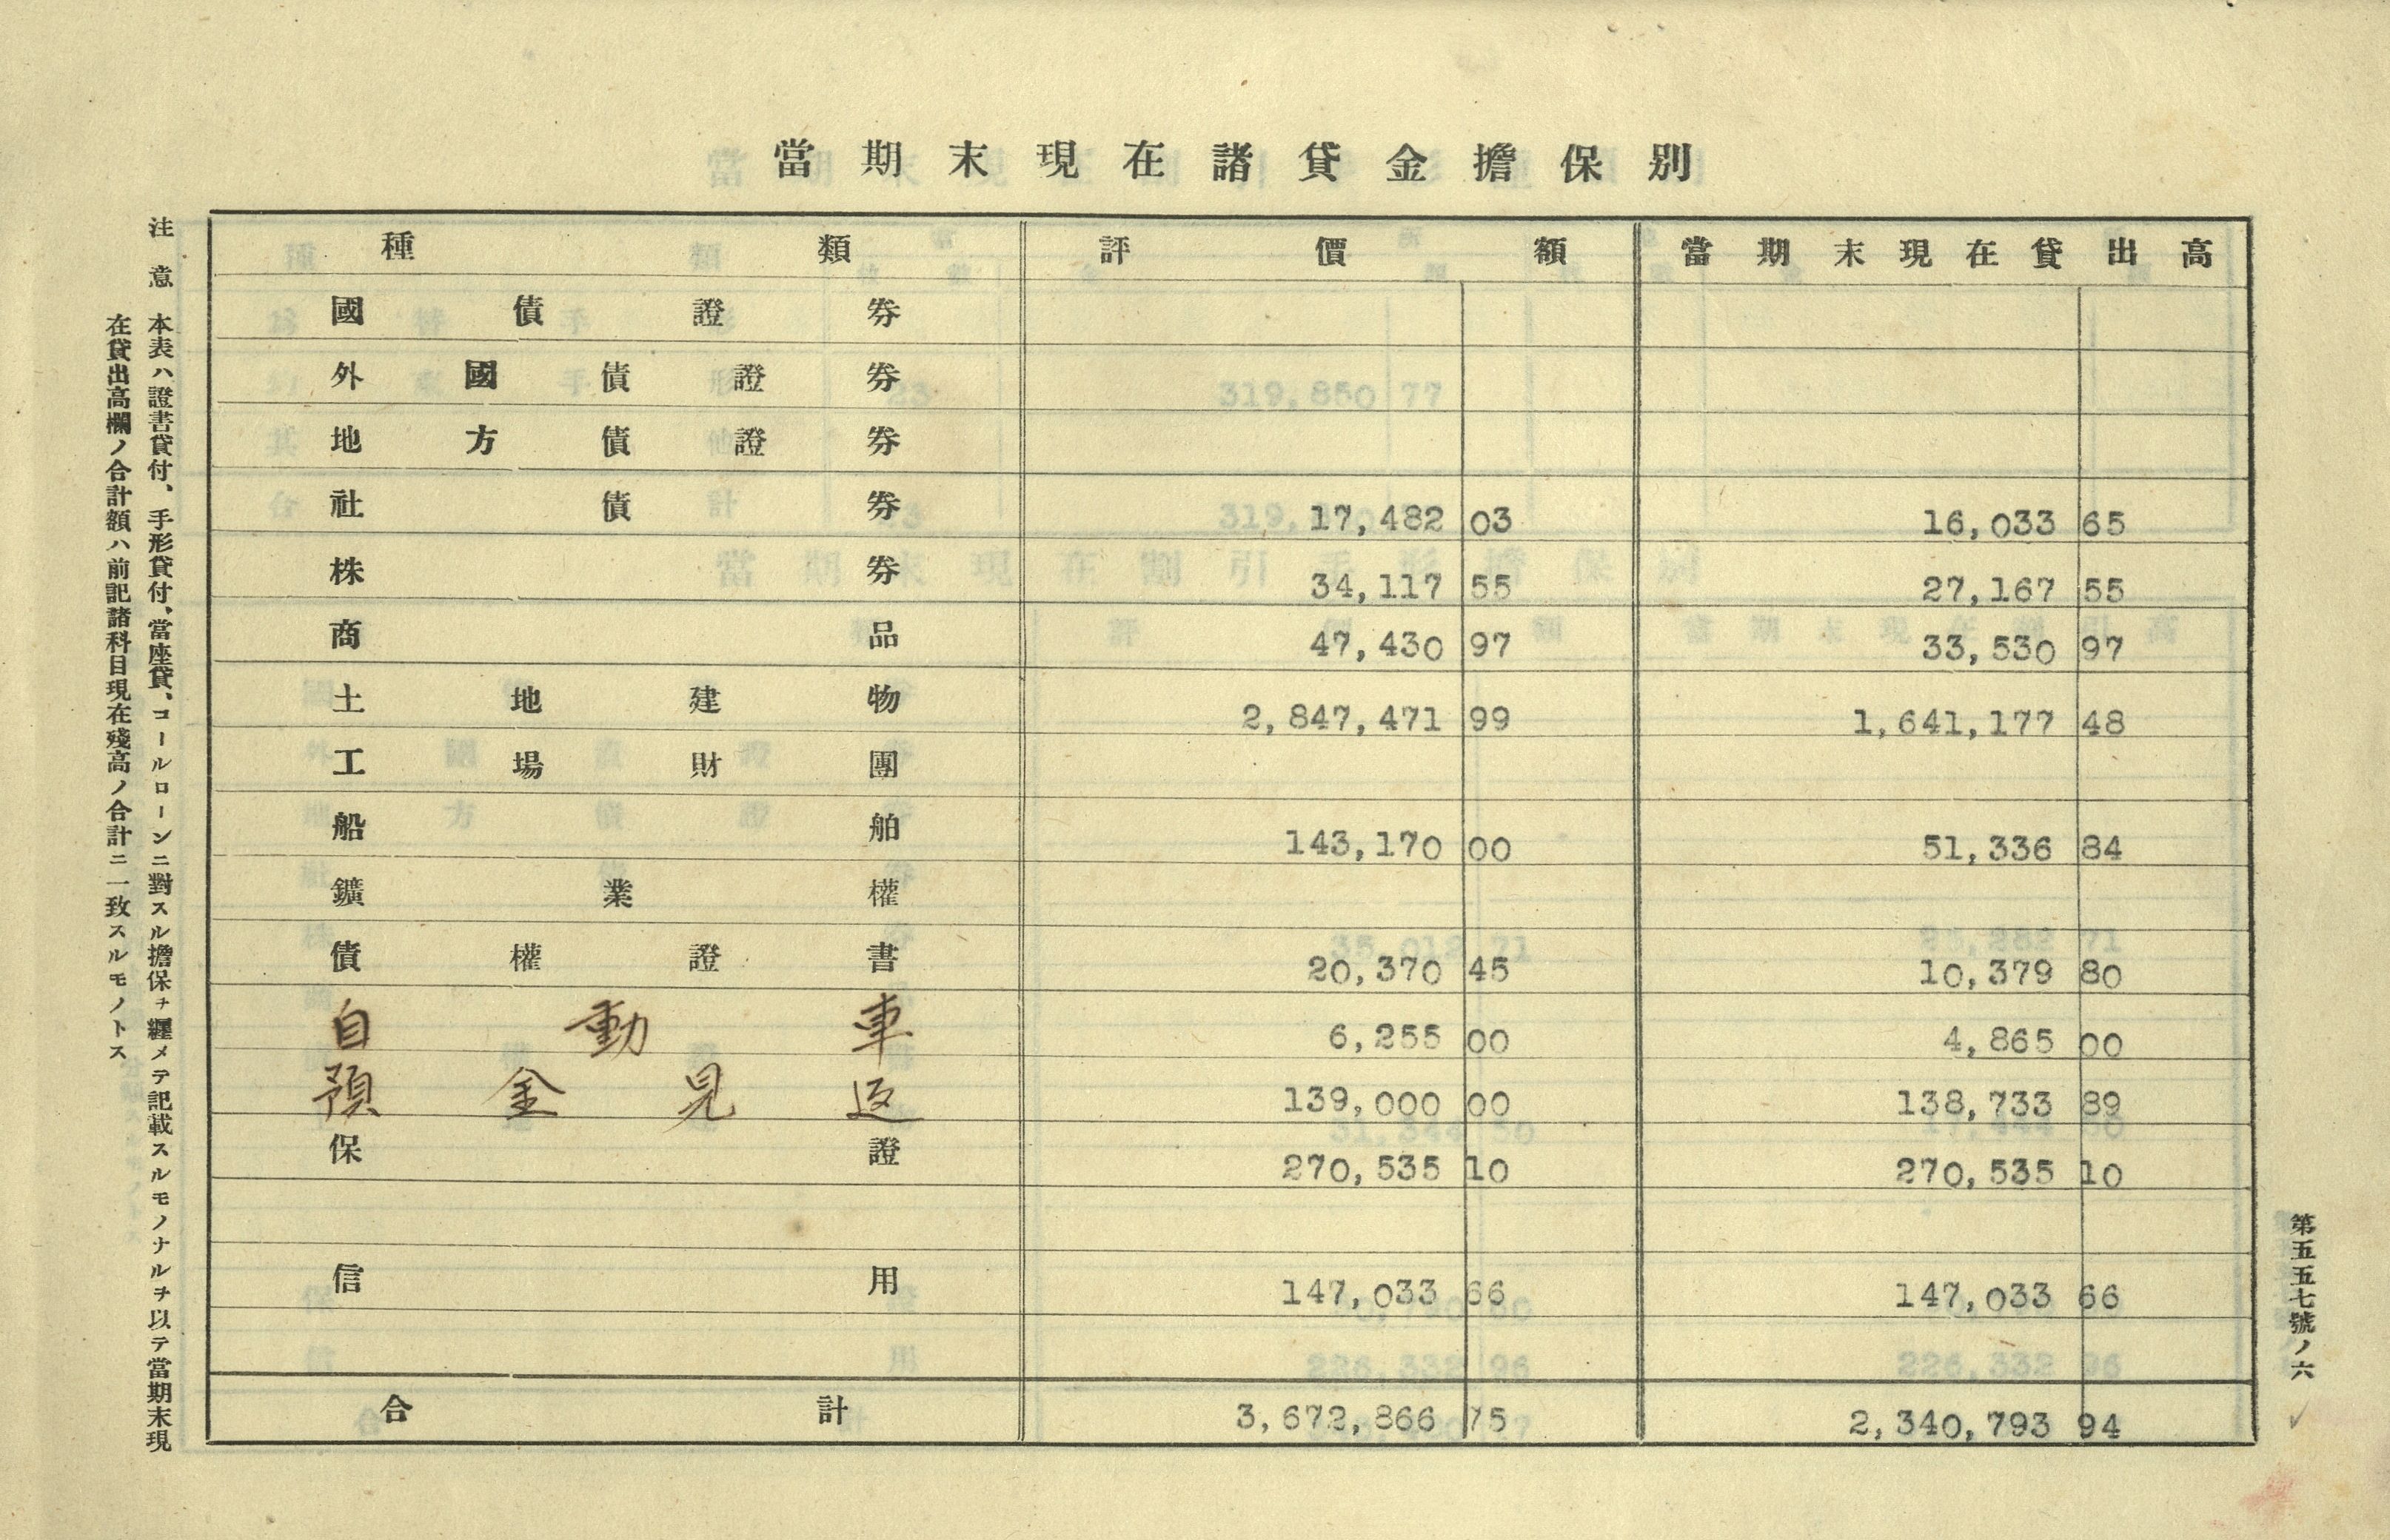 當期末現在諸貸金擔保別
種類 評價額 當期末現在貸出高
國債證券
外國債證券
地方債證券
社債券 17,482 03 16,033 65
株券 34,117 55 27,167 55
商品 47,430 97 33,530 97
土地建物 2,847,471 99 1,641,177 48
工場財團
船舶 143,170 00 51,336 84
鑛業權
債權證書 20,370 45 10,379 80
自動車 6,255 00 4,865 00
預金見返 139,000 00 138,733 89
保證 270,535 10 270,535 10
信用 147,033 66 147,033 66
合計 3,672,866 75 2,340,793 94
注意 本表ハ證書貸付、手形貸付、當座貸、コールローンニ對スル擔保ヲ纒メテ記載スルモノナルヲ以テ當期末現
在貸出高欄ノ合計額ハ前記諸科目現在殘高ノ合計ニ一致スルモノトス
第五五七號ノ六